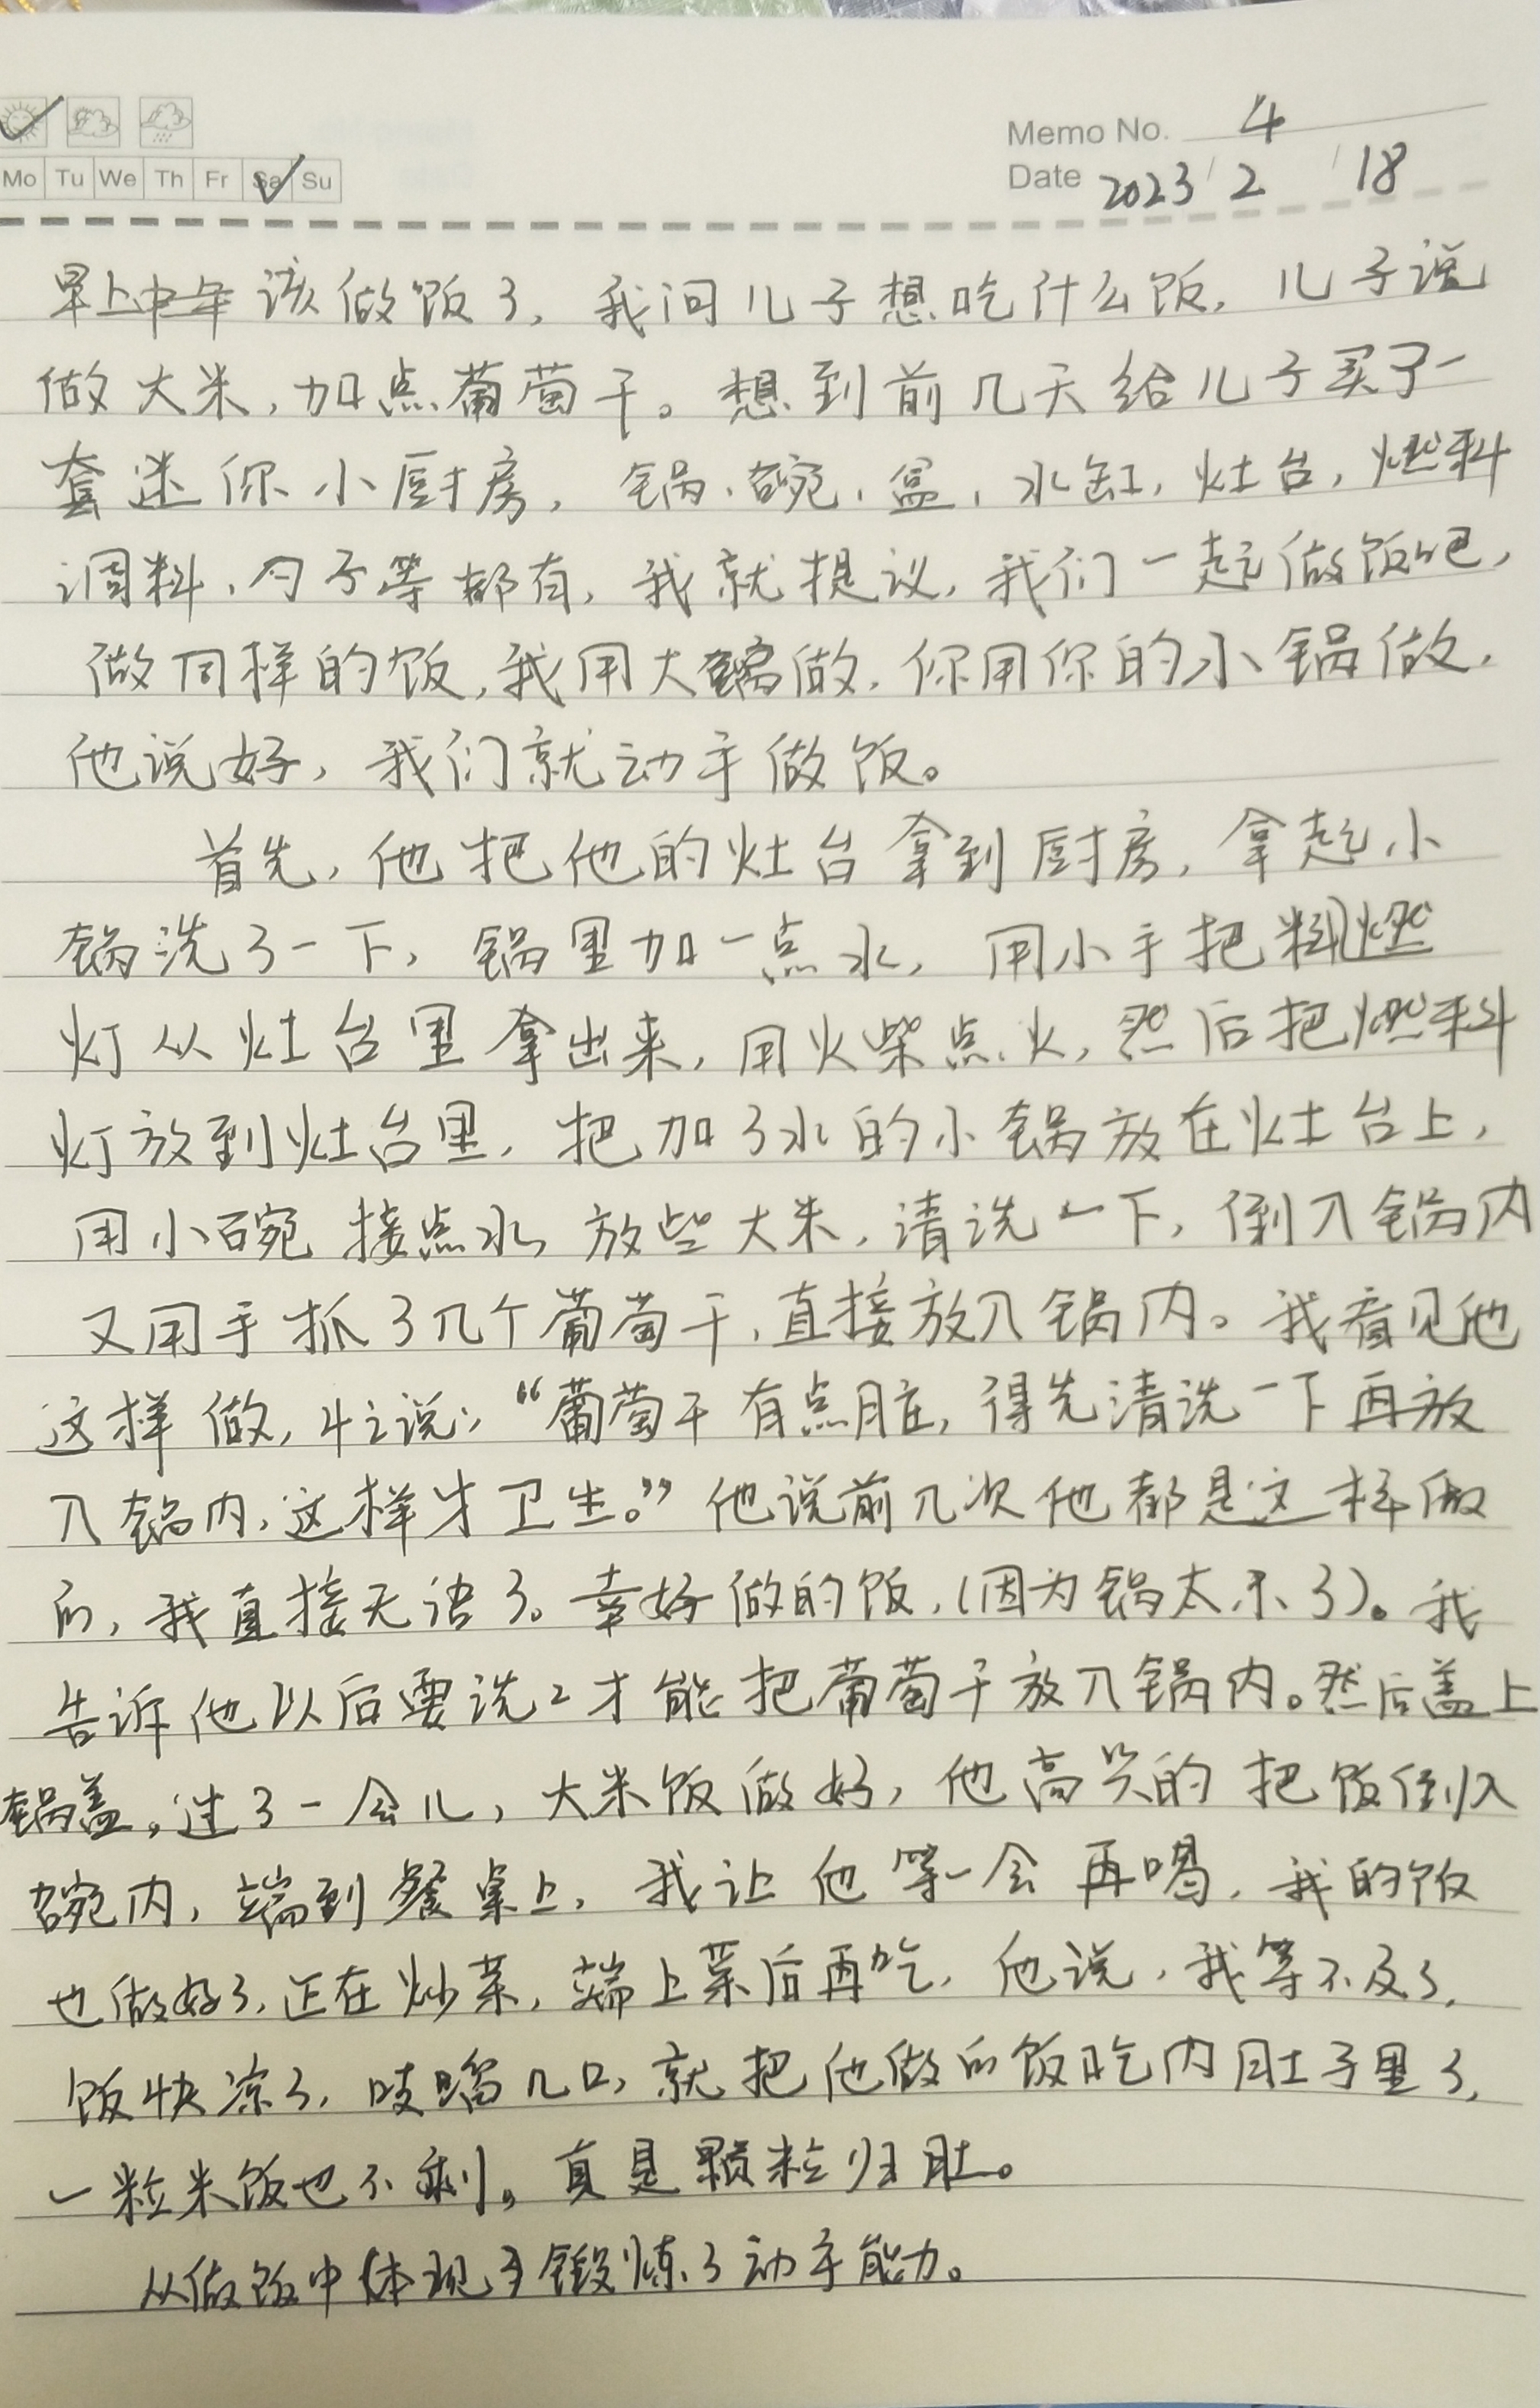 Memo No. 4
Mo Tu We Th Fr Sa Su
Date 2023 / 2 / 18
早上 该做饭了，我问儿子想吃什么饭，儿子说
做大米，加点葡萄干。想到前几天给儿子买了一
套迷你小厨房，锅、碗、盆、水缸，灶台，燃料
调料、勺子等都有，我就提议，我们一起做饭吧，
做同样的饭，我用大锅做，你用你的小锅做，
他说好，我们就动手做饭。
首先，他把他的灶台拿到厨房，拿起小
锅洗了一下，锅里加一点水，用小手把燃
灯从灶台里拿出来，用火柴点火，然后把燃料
灯放到灶台里，把加了水的小锅放在灶台上，
用小碗接点水，放些大米，清洗一下，倒入锅内
又用手抓了几个葡萄干，直接放入锅内。我看见他
这样做，忙说：“葡萄干有点脏，得先清洗一下再放
入锅内，这样才卫生。”他说前几次他都是这样做
的，我直接无语了。幸好做的饭，（因为锅太小了）。我
告诉他以后要洗洗才能把葡萄干放入锅内。然后盖上
锅盖。过了一会儿，大米饭做好，他高兴的把饭倒入
碗内，端到餐桌上，我让他等一会再喝，我的饭
也做好了，正在炒菜，端上菜后再吃，他说，我等不及了，
饭快凉了，吱溜几口，就把他做的饭吃内肚子里了，
一粒米饭也不剩。真是颗粒归肚。
从做饭中体现了锻炼了动手能力。